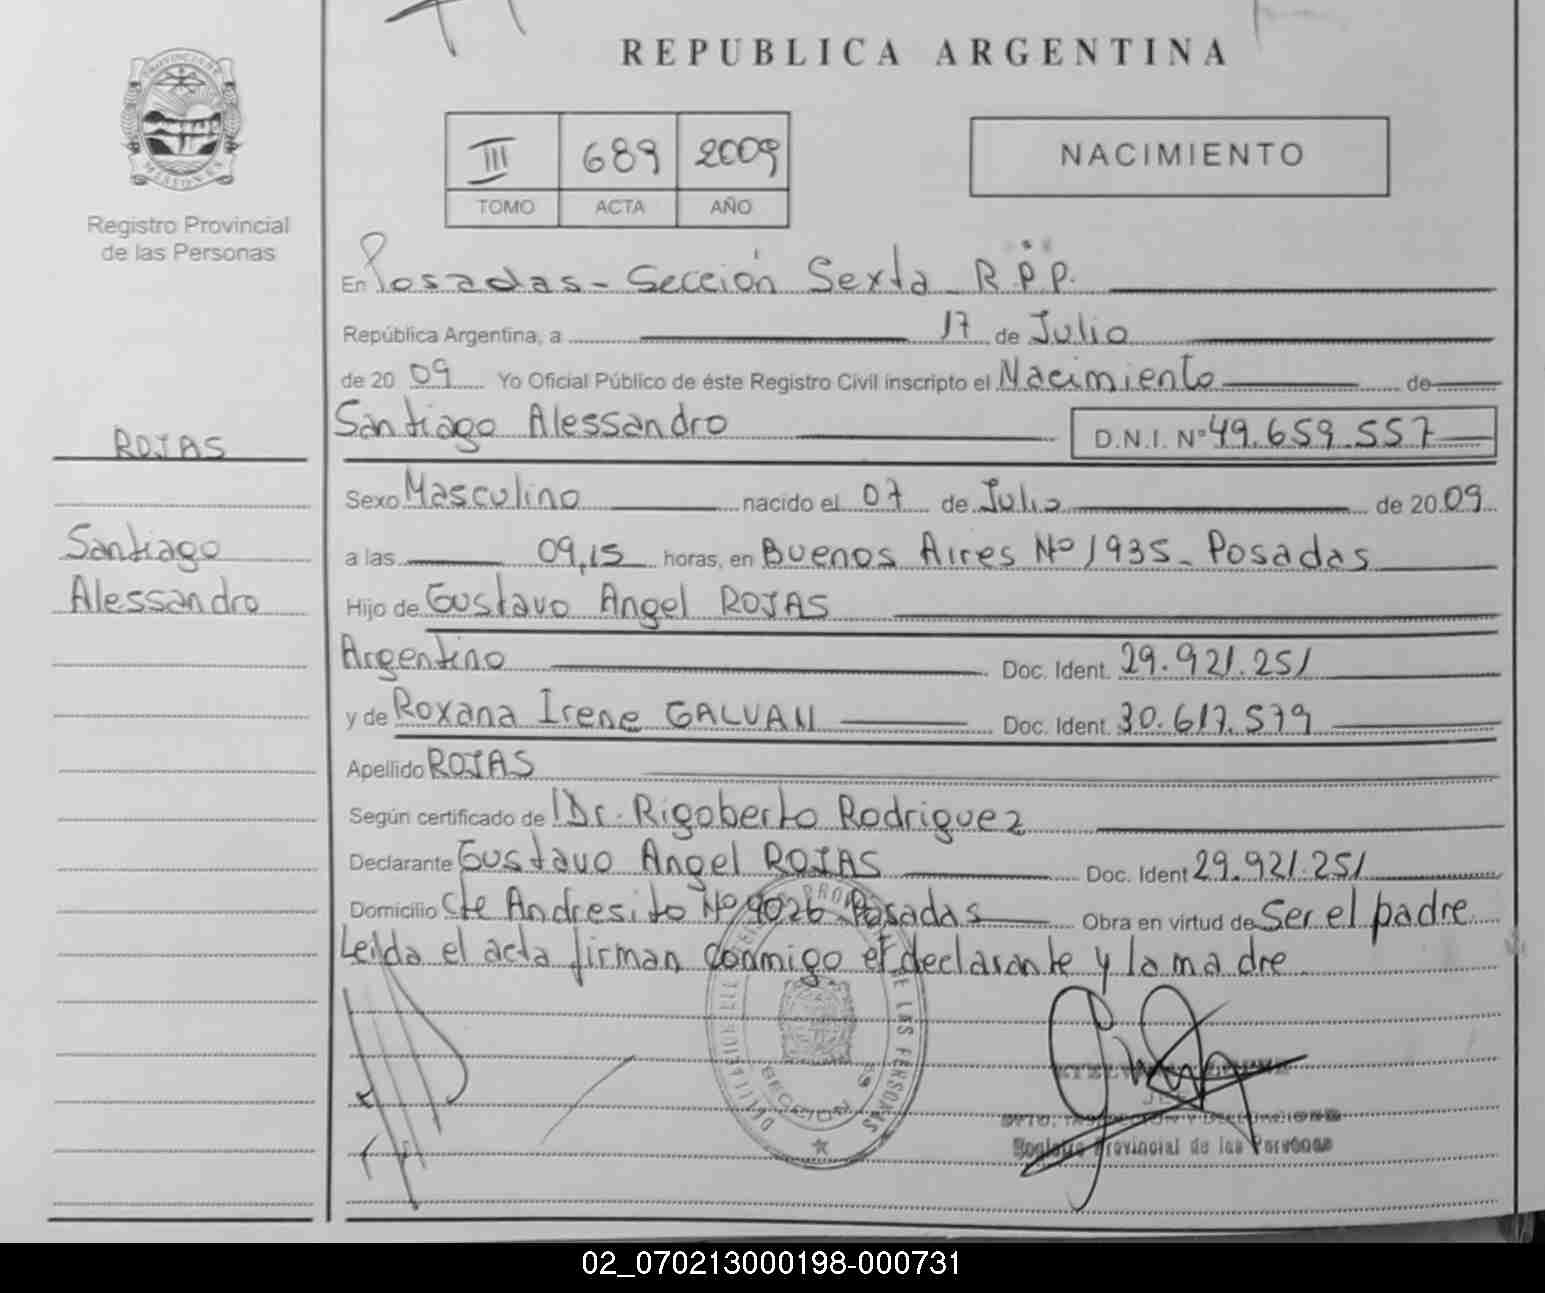 REPUBLICA ARGENTINA
PROVINCIA DE
MISIONES
Registro Provincial
de las Personas
III 689 2009
TOMO ACTA AÑO
NACIMIENTO
En Posadas - Sección Sexta R.P.P.
República Argentina, a 17 de Julio
de 20 09 Yo Oficial Público de éste Registro Civil inscripto el Nacimiento de
Santiago Alessandro D.N.I. Nº 49.659.557
ROJAS
Santiago
Alessandro
Sexo Masculino nacido el 07 de Julio de 20 09
a las 09,15 horas, en Buenos Aires Nº 1935 - Posadas
Hijo de Gustavo Angel ROJAS
Argentino Doc. Ident. 29.921.251
y de Roxana Irene GALVAN Doc. Ident. 30.617.579
Apellido ROJAS
Según certificado de Dr. Rigoberto Rodriguez
Declarante Gustavo Angel ROJAS Doc. Ident 29.921.251
Domicilio Cte Andresito Nº 9026 Posadas Obra en virtud de Ser el padre
Leida el acta firman conmigo el declarante y la madre
DE LAS PERSONAS
SECCION 6ª
Registro Provincial de las Personas
02_070213000198-000731